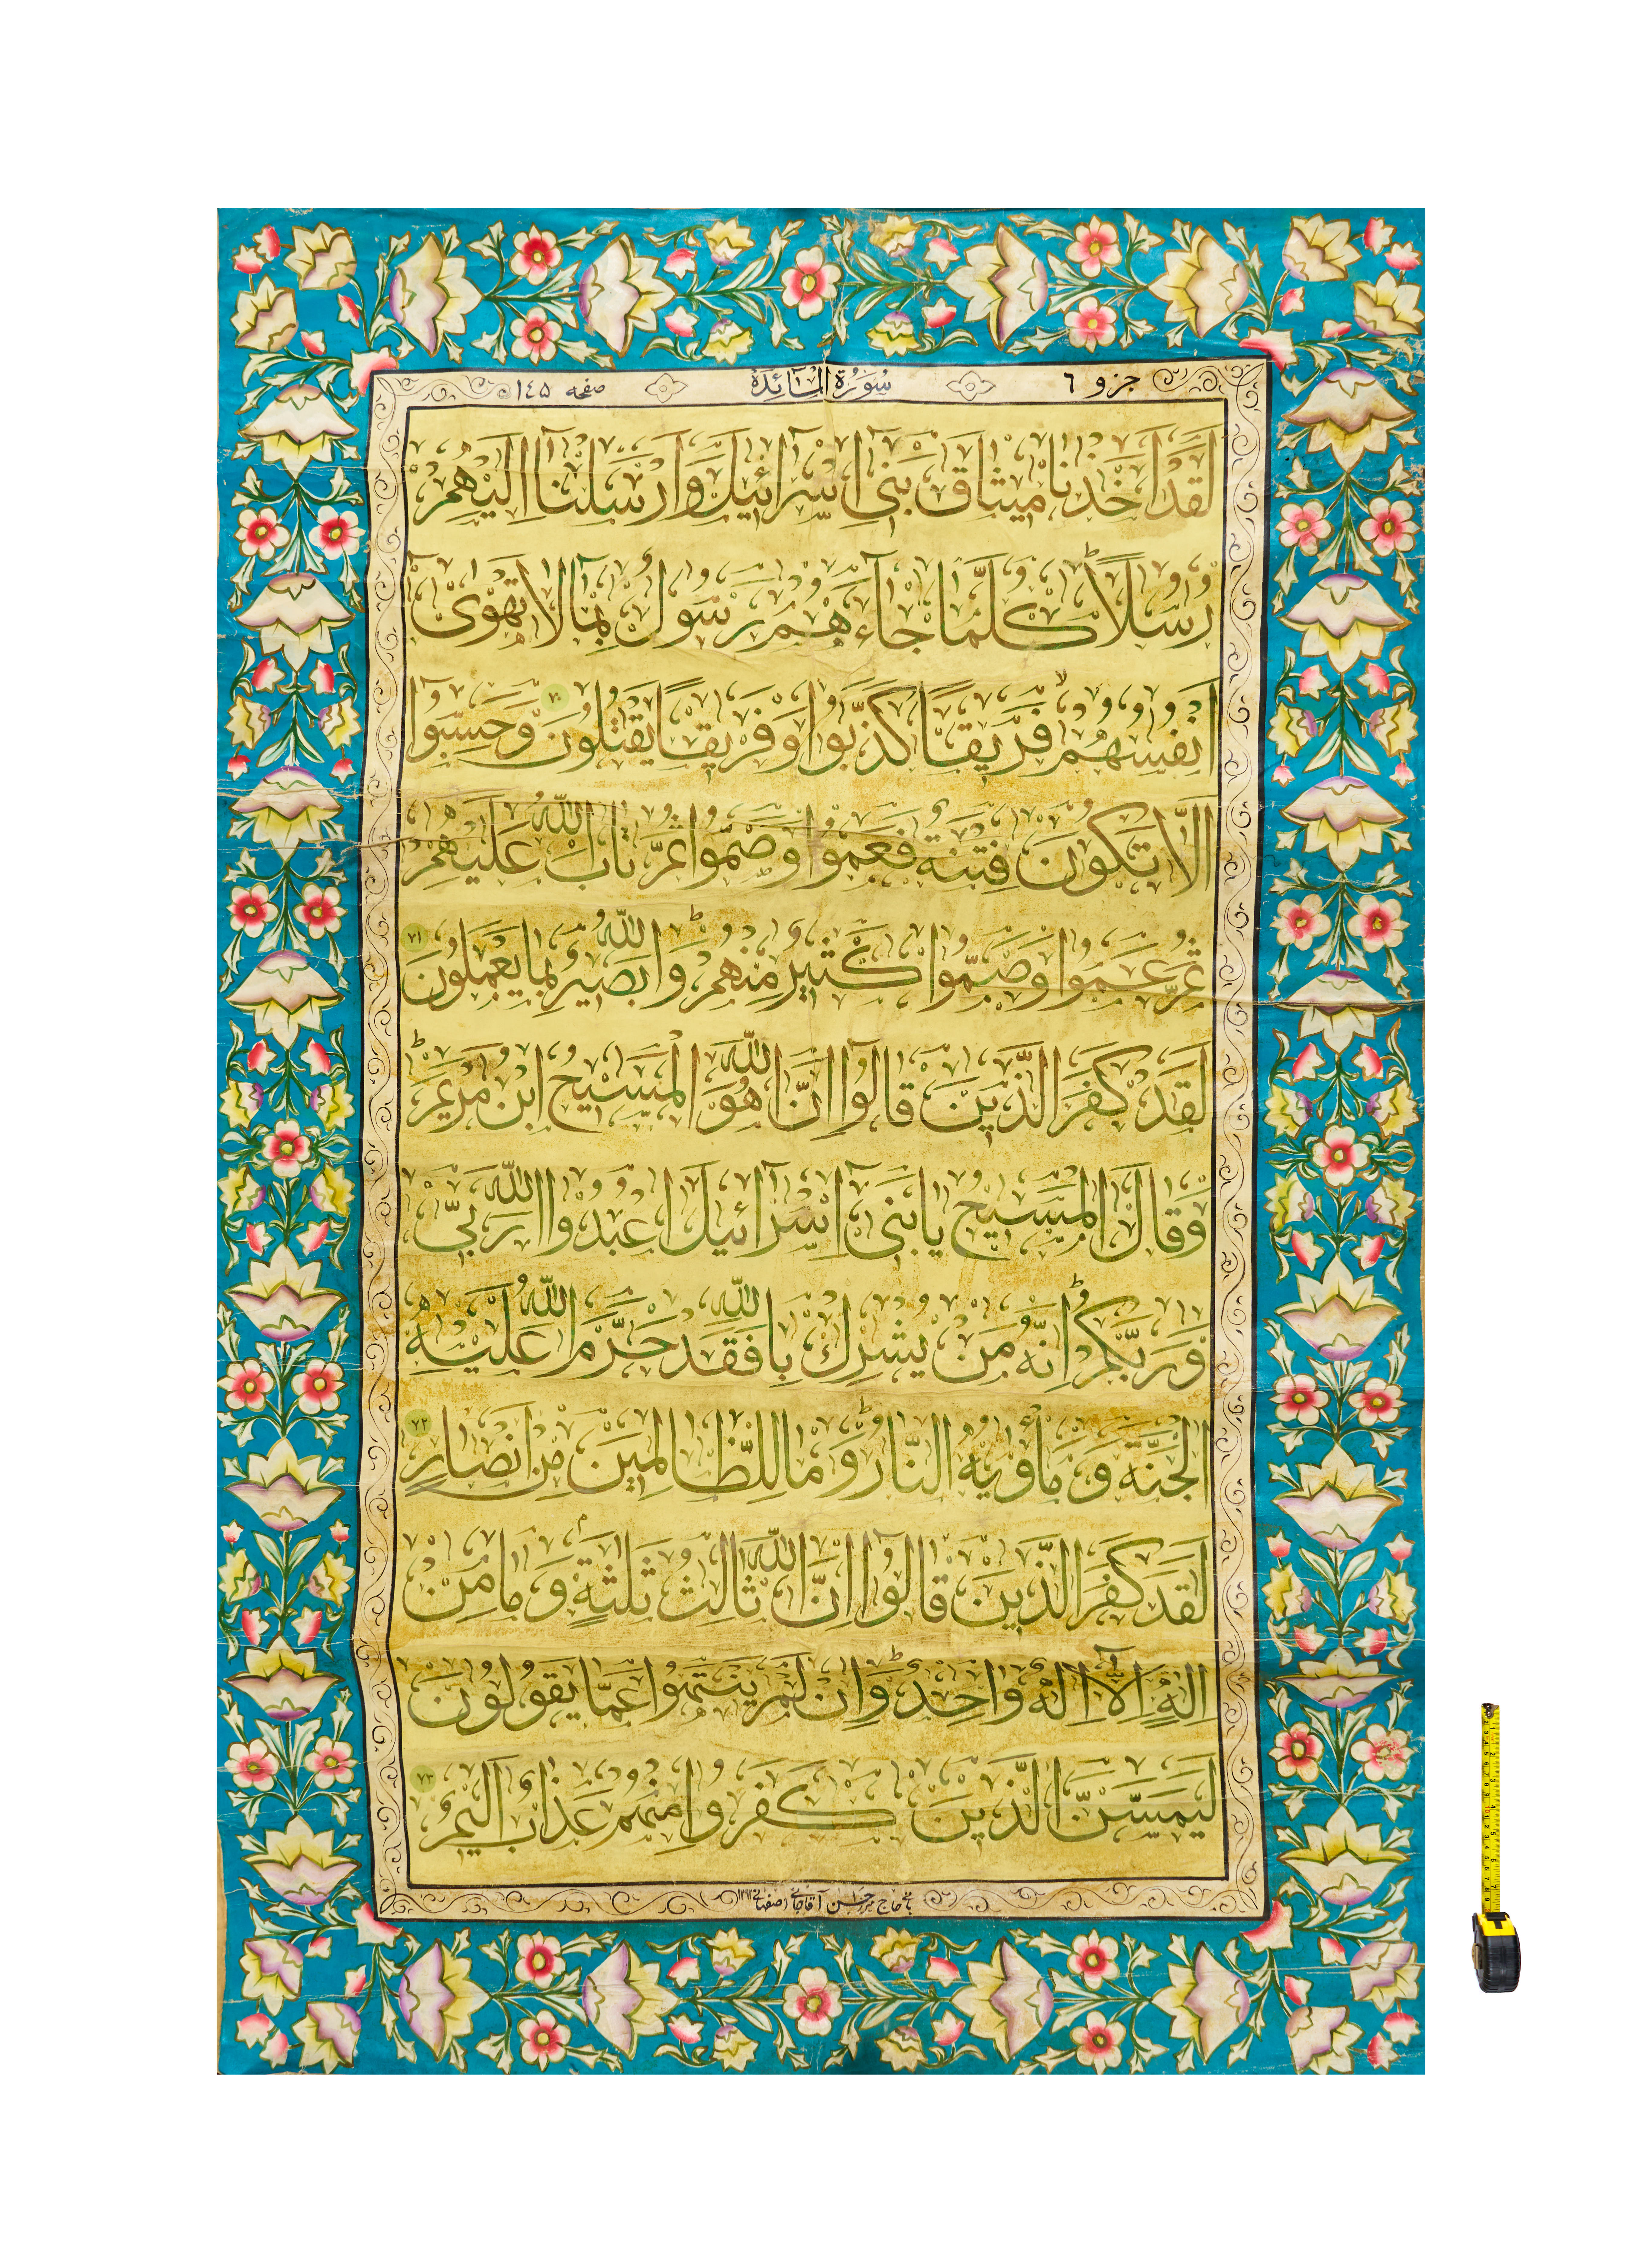 جزو ٦ سُورَةُ الْمآئِدَة صفحه ١٤٥
لَقَدْ اَخَذْنا ميثاقَ بَنى اِسْرآئيلَ وَاَرْسَلْنا اِلَيْهِمْ
رُسُلاً كُلَّما جآءَهُمْ رَسُولٌ بِما لا تَهْوى
اَنْفُسُهُمْ فَريقًا كَذَّبُوا وَفَريقًا يَقْتُلُونَ ٧٠ وَحَسِبُوا
اَلاّ تَكُونَ فِتْنَةٌ فَعَمُوا وَصَمُّوا ثُمَّ تابَ اللّٰهُ عَلَيْهِمْ
ثُمَّ عَمُوا وَصَمُّوا كَثيرٌ مِنْهُمْ وَاللّٰهُ بَصيرٌ بِما يَعْمَلُونَ ٧١
لَقَدْ كَفَرَ الَّذينَ قالُوا اِنَّ اللّٰهَ هُوَ الْمَسيحُ ابْنُ مَرْيَمَ
وَقالَ الْمَسيحُ يا بَنى اِسْرآئيلَ اعْبُدُوا اللّٰهَ رَبّى
وَرَبَّكُمْ اِنَّهُ مَنْ يُشْرِكْ بِاللّٰهِ فَقَدْ حَرَّمَ اللّٰهُ عَلَيْهِ
الْجَنَّةَ وَمَأْويهُ النّارُ وَما لِلظّالِمينَ مِنْ اَنْصارٍ ٧٢
لَقَدْ كَفَرَ الَّذينَ قالُوا اِنَّ اللّٰهَ ثالِثُ ثَلثَةٍ وَما مِنْ
اِلهٍ اِلاّ اِلهٌ واحِدٌ وَاِنْ لَمْ يَنْتَهُوا عَمّا يَقُولُونَ
لَيَمَسَّنَّ الَّذينَ كَفَرُوا مِنْهُمْ عَذابٌ اَليمٌ ٧٣
حاج ميرزا حسن آقاجانى اصفهانى